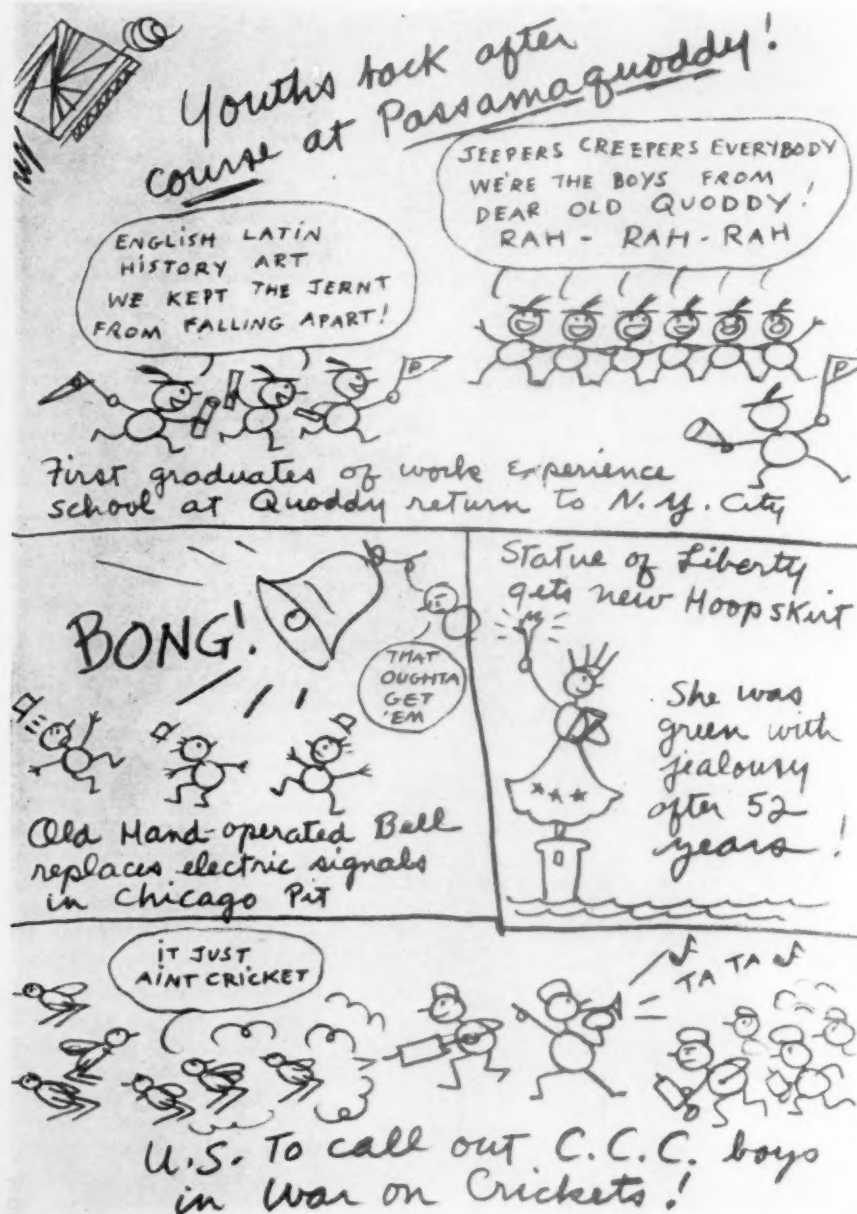 Youths back after
course at Passamaquoddy!
ENGLISH LATIN
HISTORY ART
WE KEPT THE JERNT
FROM FALLING APART!
JEEPERS CREEPERS EVERYBODY
WE'RE THE BOYS FROM
DEAR OLD QUODDY!
RAH - RAH - RAH
P
P
First graduates of work Experience
school at Quoddy return to N.Y. City
BONG!
THAT
OUGHTA
GET
'EM
Old Hand-operated Bell
replaces electric signals
in Chicago Pit
Statue of Liberty
gets new Hoopskirt
She was
green with
jealousy
after 52
years!
IT JUST
AINT CRICKET
TA TA
U.S. To call out C.C.C. boys
in War on Crickets!